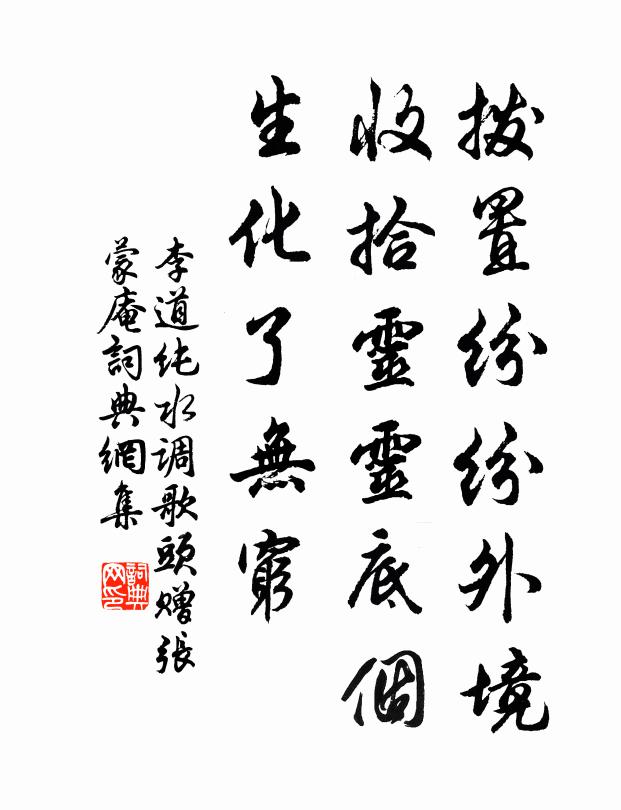 拨置纷纷外境
收拾靈靈底個
生化了無窮
李道纯水调歌頭赠張
蒙庵詞典網集
詞典
网印